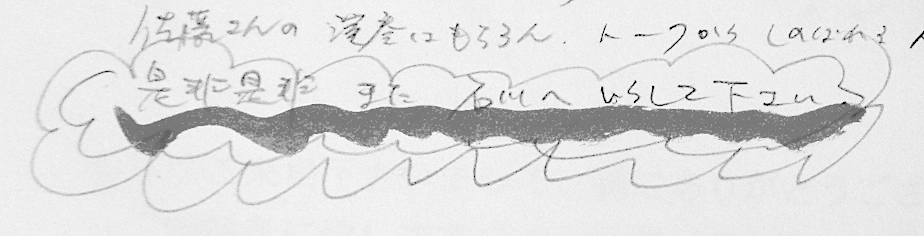 佐藤さんの演奏はもちろん、トークからしのばれる
是非是非 また 石川へ いらして下さい